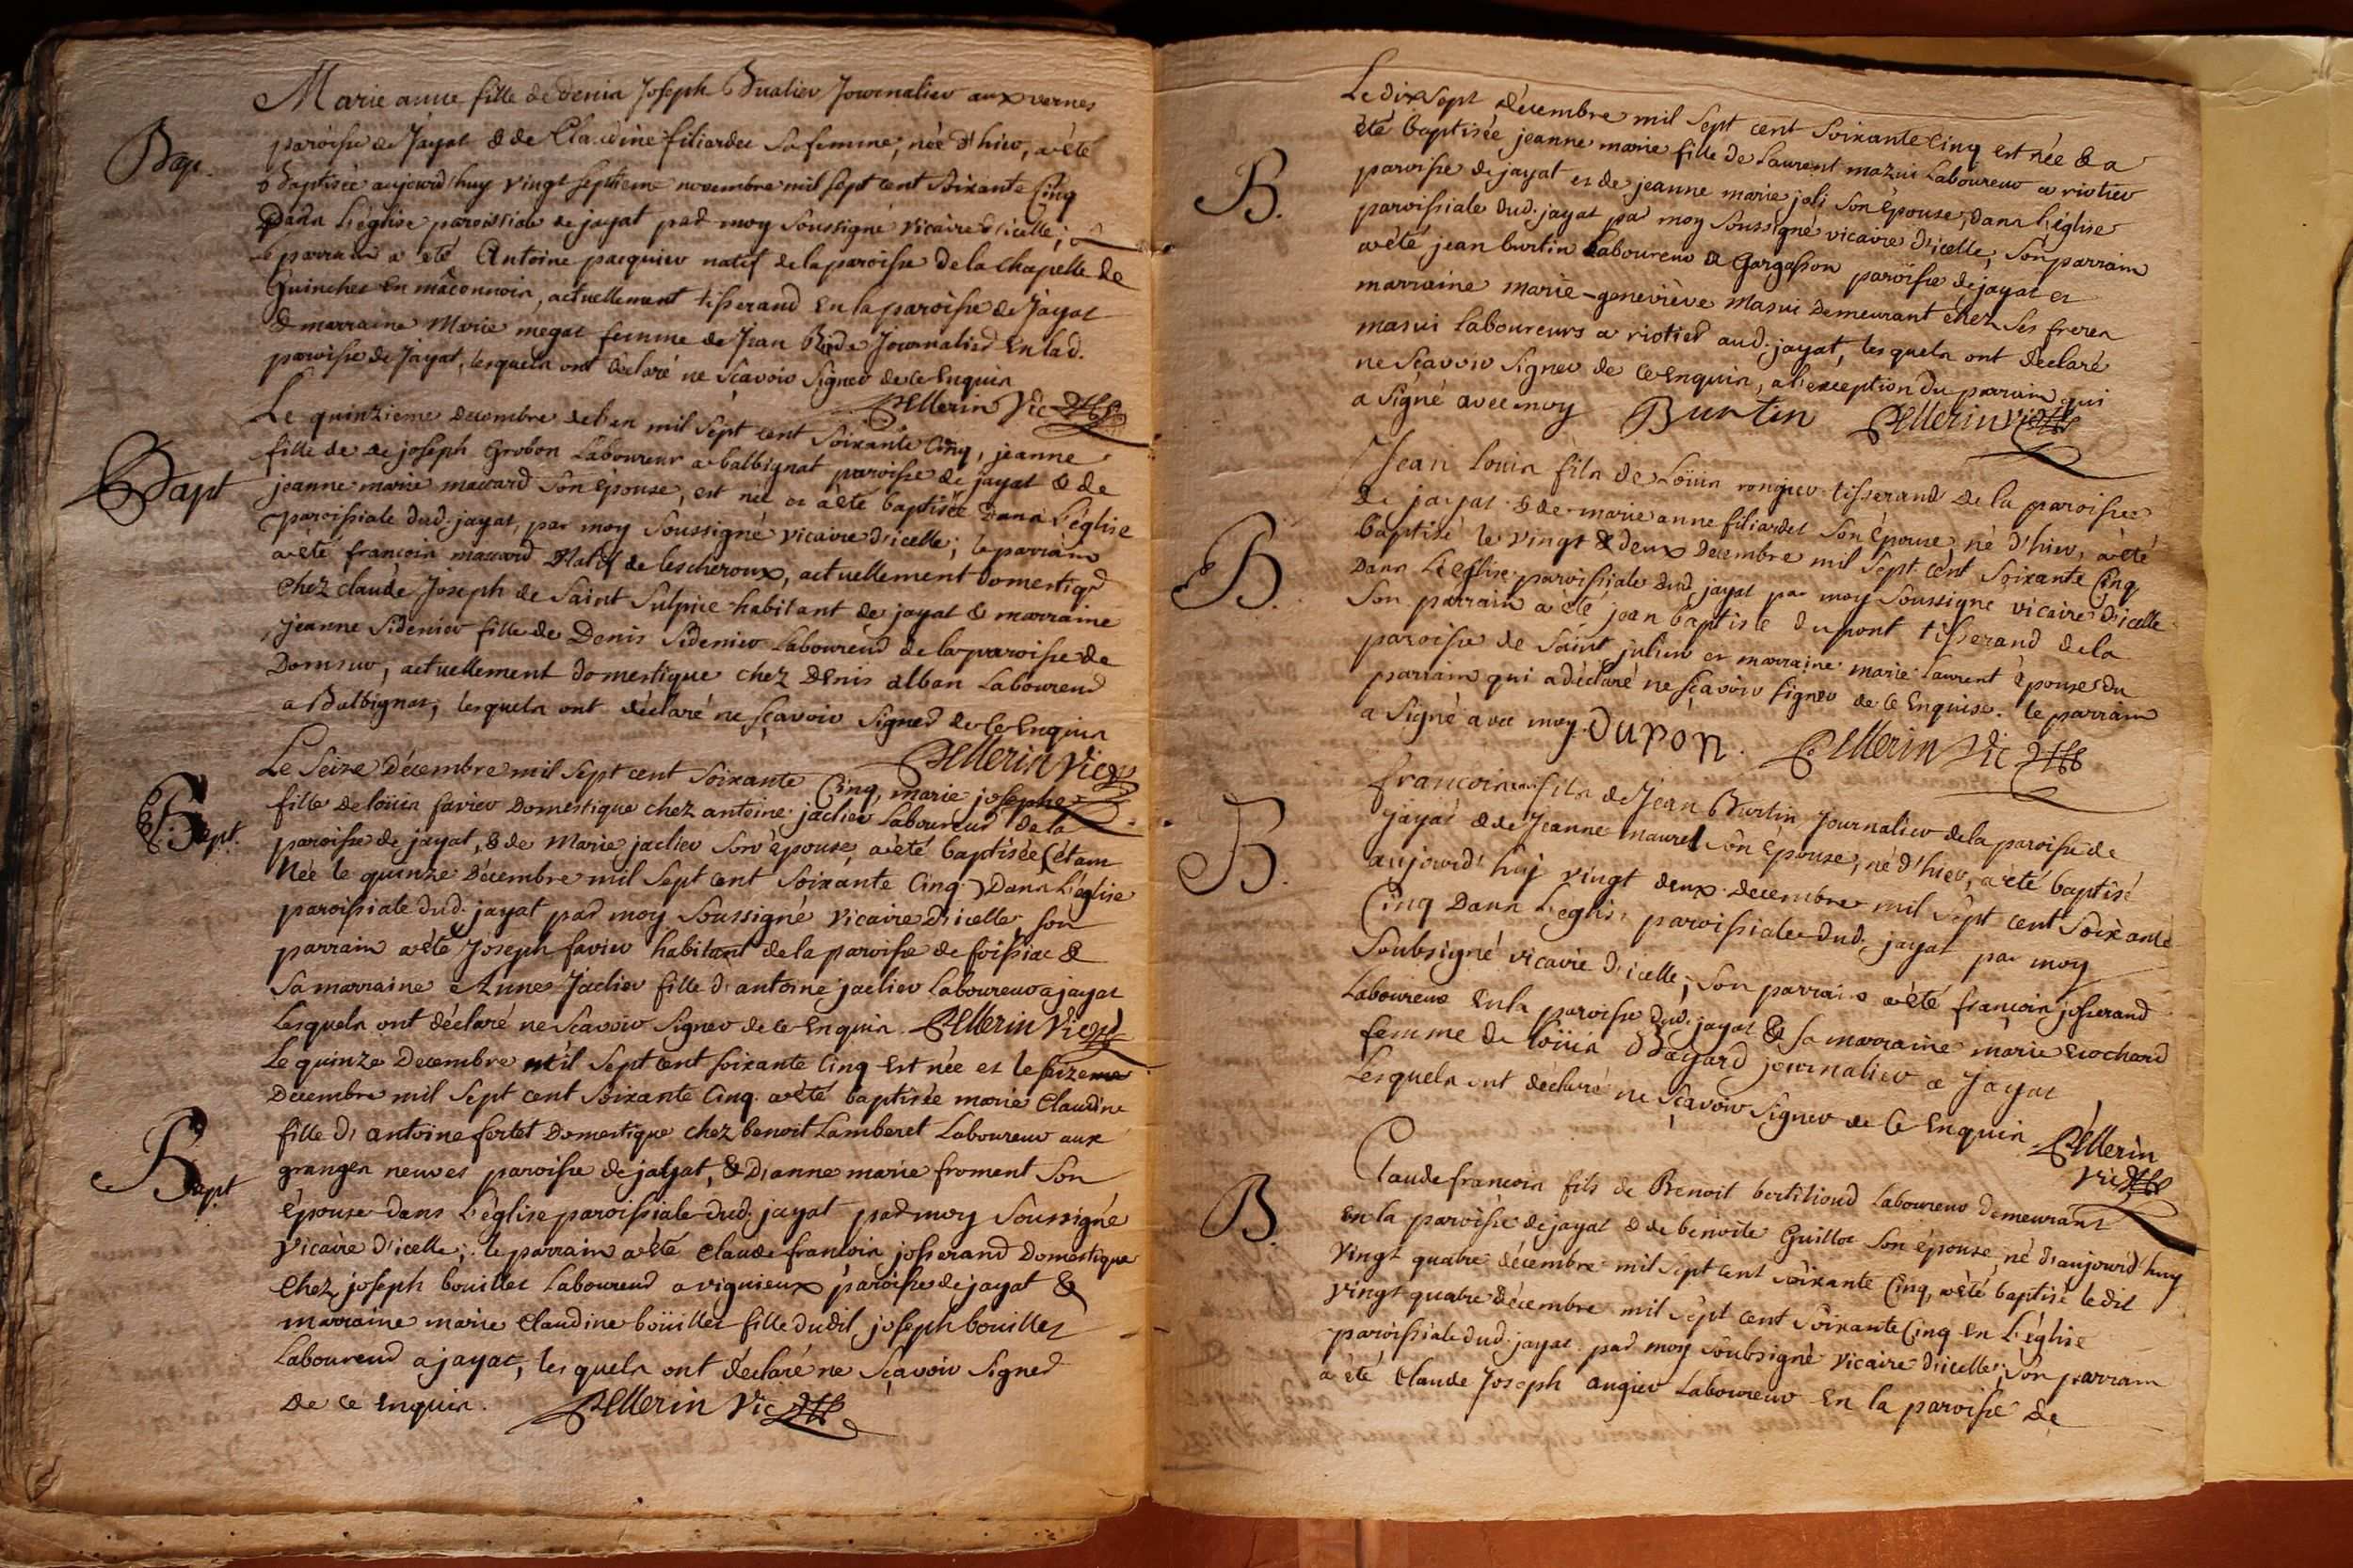 Marie anne fille de denis Joseph Bualier Journalier aux vernes
Bap.
paroisse de Jayat & de Claudine filiardet sa femme, née d'hier, a été
baptisée aujourd'huy vingt septieme novembre mil sept cent soixante Cinq
Dans L'église paroissiale de jayat par moy soussigné vicaire d'icelle;
le parrain a été Antoine pacquier natif de la paroisse de la chapelle de
Guinchet en mâconnois, actuellement tisserand en la paroisse de Jayat
& marraine Marie megat femme de Jean Journalier en lad.
paroisse de Jayat, lesquels ont déclaré ne scavoir signer de ce enquis
Pellerin Vic
Le quinzieme decembre de l'an mil sept cent soixante Cinq, jeanne
Bapt
fille de de joseph Grobon Laboureur a balbignat paroisse de jayat & de
jeanne marie maccard son épouse, est née et a été baptisée Dans L'église
paroissiale dud. jayat, par moy soussigné vicaire d'icelle; le parrain
a été francois maccard Natif de lescheroux, actuellement domestiqr
chez claude Joseph de Saint Sulpice habitant de jayat & marraine
jeanne Sidenier fille de Denis Sidenier Laboureur de la paroisse de
Domsur, actuellement domestique chez Denis alban Laboureur
a Balbignat, lesquels ont déclaré ne sçavoir signer de ce enquis
Pellerin Vic
Le Seize Décembre mil sept cent soixante Cinq, marie josephe
Bapt.
fille de loüis favier Domestique chez antoine jaclier Laboureur de la
paroisse de jayat, & de Marie jaclier son épouse, a été baptisée (étam
Née le quinze Décembre mil sept cent soixante Cinq) Dans L'église
paroissiale dud. jayat par moy soussigné vicaire d'icelle son
parrain a été Joseph favier habitant de la paroisse de foissiac &
sa marraine Anne Jaclier fille d'antoine jaclier Laboureur a jayat
Lesquels ont déclaré ne scavoir signer de ce enquis. Pellerin Vic
Le quinze Decembre mil sept cent soixante Cinq est née et le seizeme
Decembre mil sept cent soixante Cinq. a été baptisée marie Claudine
Bapt
fille d'antoine fertet Domestique chez benoit Lamberet Laboureur aux
granges neuves paroisse de jayat, & d'anne marie froment son
épouse dans L'église paroissiale dud. jayat par moy soussigné
vicaire d'icelle; le parrain a été Claude francois josserand Domestique
chez joseph bouillet Laboureur a viguieux paroisse de jayat &
marraine marie Claudine boüillet fille dudit joseph bouillet
Laboureur a jayat, lesquels ont déclaré ne sçavoir signer
de ce enquis. Pellerin Vic
Le dix sept décembre mil sept cent soixante Cinq est née & a
été baptisée jeanne marie fille de Laurent mazui Laboureur a riotier
B.
paroisse de jayat et de jeanne marie joli son épouse, dans L'église
paroissiale dud. jayat par moy soussigné vicaire d'icelle, son parrain
a été jean burtin Laboureur a Gargasson paroisse de jayat et
marraine marie-geneviève masui demeurant chez ses freres
masui laboureurs a riotier aud. jayat, lesquels ont déclaré
ne sçavoir signer de ce enquis, a l'exception du parrain qui
a signé avec moy Burtin Pellerin vic
Jean louis fils de Loüis rongier tisserand de la paroisse
de jayat & de marie anne filiardet son épouse, né d'hier, a été
B.
baptisé le vingt & deux Decembre mil sept cent soixante Cinq
Dans L'eglise paroissiale dud. jayat par moy soussigné vicaire d'icelle
son parrain a été jean baptiste dupont tisserand de la
paroisse de saint julien et marraine marie laurent épouse du
parrain qui a déclaré ne sçavoir signer de ce enquise. le parrain
a signé avec moy. Dupon. Pellerin Vic
francois fils de Jean Burtin Journalier de la paroisse de
B.
jayat & de Jeanne maurel son épouse, né d'hier, a été baptisé
aujourd'huy vingt deux decembre mil sept cent soixante
Cinq Dans L'eglise paroissiale dud. jayat par moy
soubsigné vicaire d'icelle; son parrain a été francois josserand
Laboureur en la paroisse dud. jayat & sa marraine marie cochard
femme de loüis Bayard journalier a Jayat
Lesquels ont déclaré ne sçavoir signer de ce enquis Pellerin
Vic
Claude francois fils de Benoit bertilioud laboureur demeurant
B.
en la paroisse de jayat & de benoite Guillot son épouse, né d'aujourd'huy
vingt quatre décembre mil sept cent soixante Cinq, a été baptisé ledit
vingt quatre décembre mil sept cent soixante Cinq en L'église
paroissiale dud. jayat par moy soubsigné vicaire d'icelle; son parrain
a été Claude Joseph augier Laboureur en la paroisse de